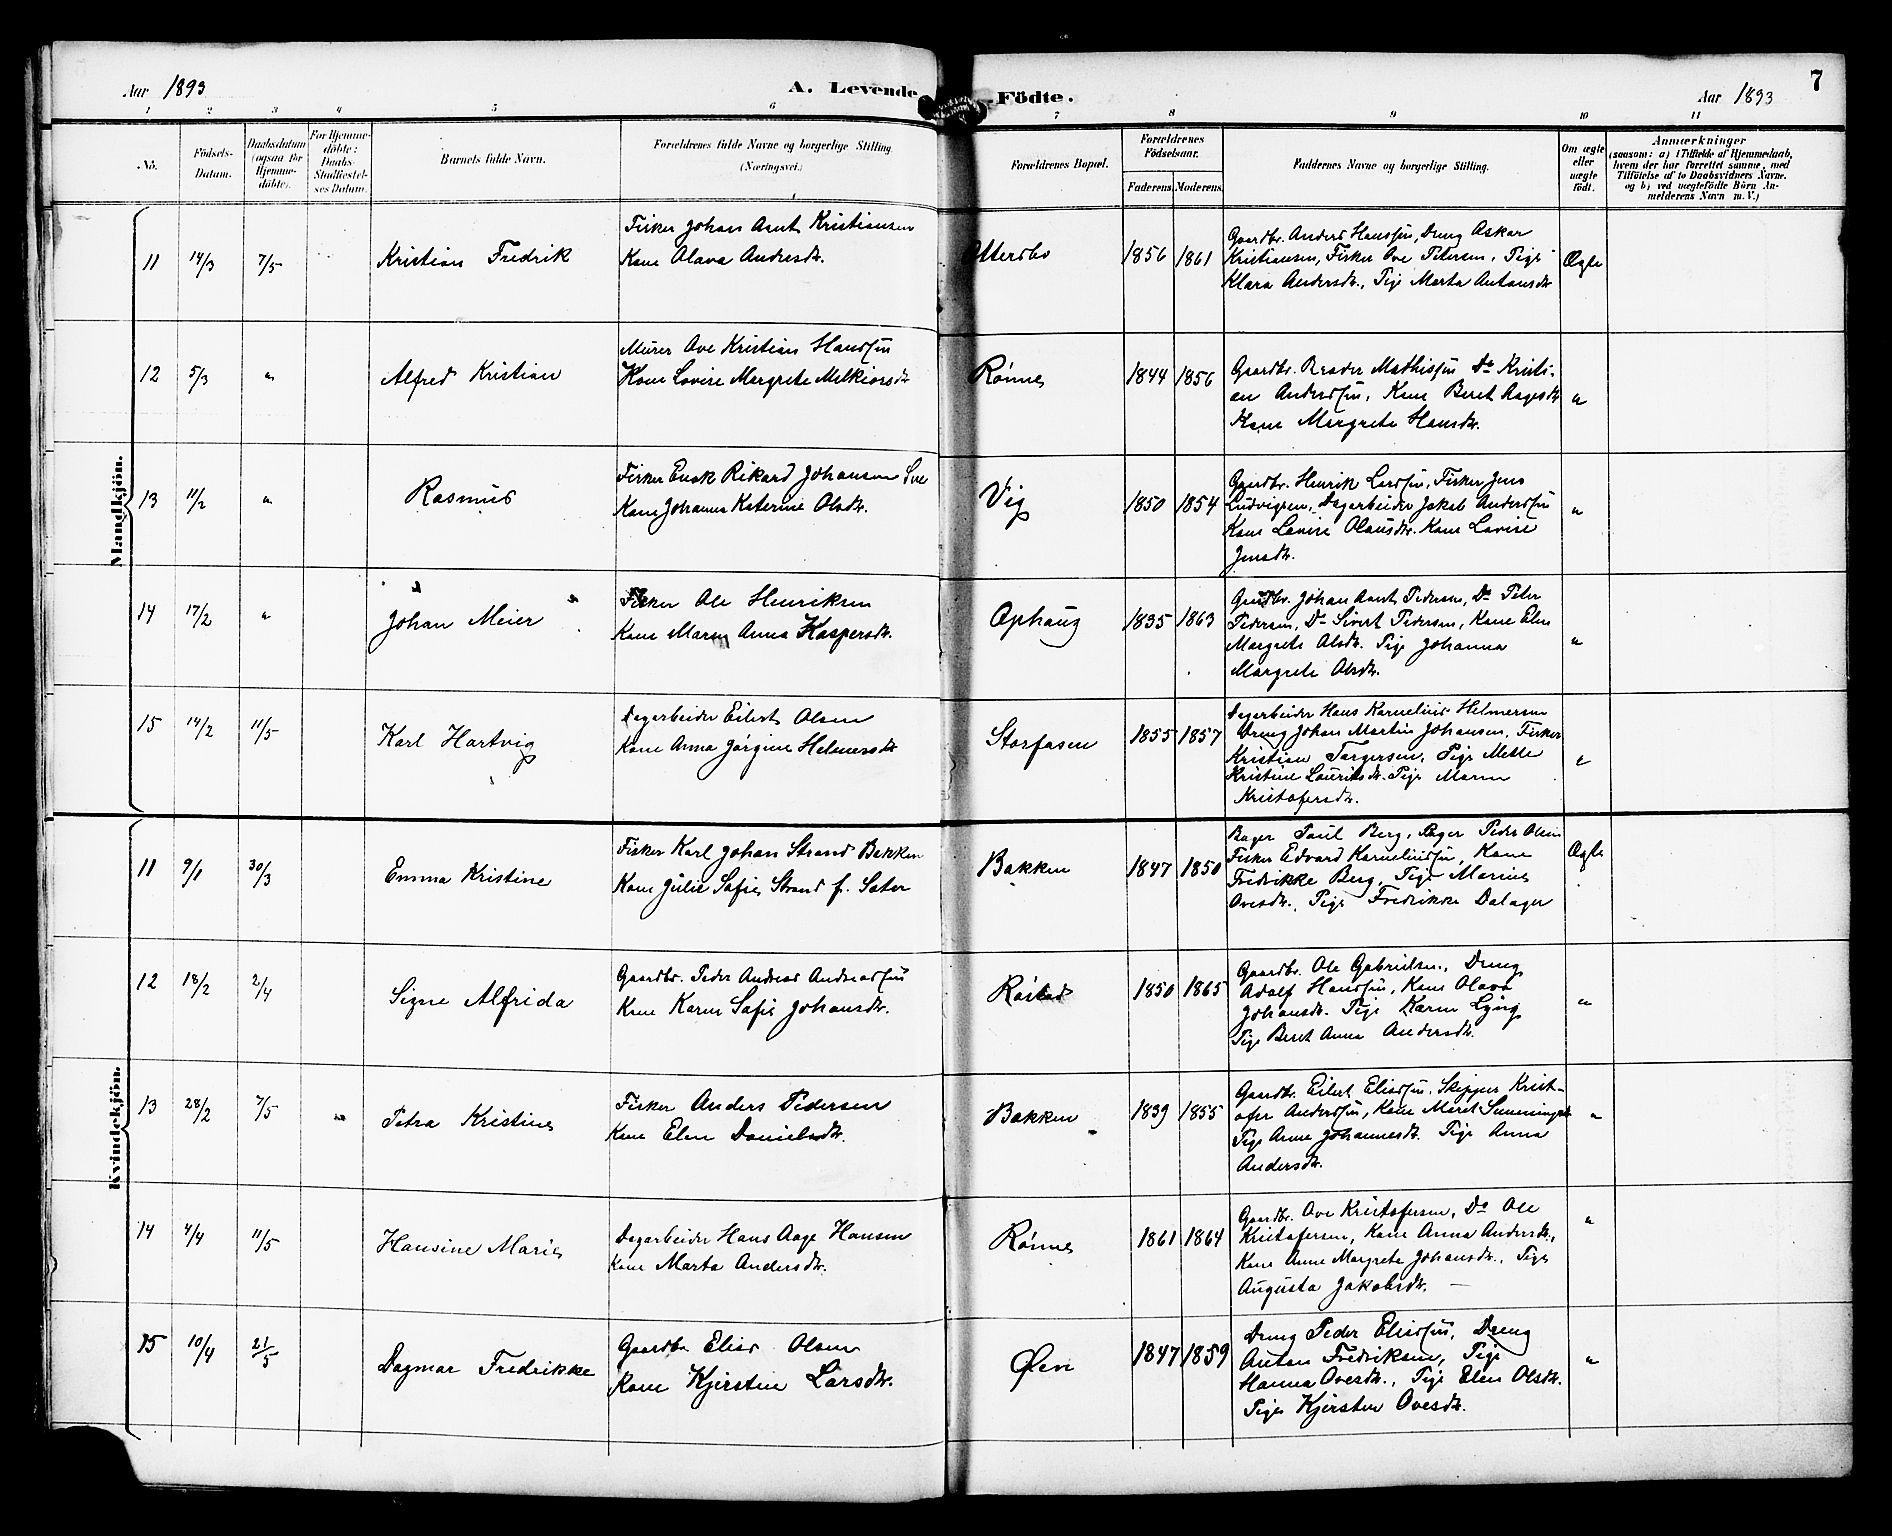 Aar 1893
A. Levende
Födte.
Aar 1893
7
1 2 3 4 5 6 7 8 9 10 11
No.
Födsels-
Datum.
Daabsdatum
(ogsaa for
Hjemme-
döbte).
For Hjemme-
döbte:
Daabs-
Stadfæstel-
ses Datum.
Barnets fulde Navn.
Forældrenes fulde Navne og borgerlige Stilling
(Næringsvei.)
Forældrenes Bopæl.
Forældrenes
Födselsaar.
Faderens.
Moderens.
Faddernes Navne og borgerlige Stilling.
Om ægte
eller
uægte
födt.
Anmærkninger
(saasom: a) i Tilfælde af Hjemmedaab,
hvem der har forrettet samme, med
Tilföielse af to Daabsvidners Navne.
og b) ved uægtefödte Börn An-
melderens Navn m. V.)
Mandkjön.
11 14/3 7/5 Kristian Fredrik
Fisker Johan Arnt Kristiansen
Kone Olava Andersdtr.
Ottersbo 1856 1861
Gaardbr. Anders Hanssøn, Dreng Askar
Kristiansen, Fisker Ove Petersen, Pige
Klara Andersdtr., Pige Marta Antonsdtr
Ægte
12 5/3 " Alfred Kristian
Murer Ove Kristian Hanssøn
Kone Lovise Margrete Melkiorsdtr
Rønne 1844 1856
Gaardbr. Mathissøn Do Kristi-
an Anderssøn, Kone Beret Aagesdtr
Kone Margrete Hansdtr.
"
13 11/2 " Rasmus
Fisker Enok Rikard Johansen
Kone Johanna Katerine Olsdtr.
Vig 1850 1854
Gaardbr. Henrik Larssøn, Fisker Jens
Ludvigsen, Dagarbeider Jakob Anderssøn
Kone Lovise Olausdtr. Kone Lovise
Jensdtr.
"
14 17/2 " Johan Meier
Fisker Ole Henriksen
Kone Maren Anna Kaspersdtr.
Ophaug 1835 1863
Gaardbr. Johan Arnt Pedersen, Do Peter
Pedersen, Do Sivert Pedersen, Kone Elen
Margrete Olsdtr. Pige Johanna
Margrete Olsdtr.
"
15 14/2 11/5 Karl Hartvig
Dagarbeider Eilert Olsen
Kone Anna Jørgine Helmersdtr
Storfosen 1855 1857
Dagarbeider Hans Kornelius Helmersen
Dreng Johan Martin Johansen, Fisker
Kristian Torgersen, Pige Mette
Kristine Lauritsdtr. Pige Maren
Kristofersdtr.
"
Kvindekjön.
11 9/1 30/3 Emma Kristine
Fisker Karl Johan Strand Bakken
Kone Julie Sofie Strand f. Sæter
Bakken 1847 1850
Bager Paul Berg, Bager Peder Olsen
Fisker Edvard Korneliussøn, Kone
Fredrikke Berg, Pige Marie
Ovesdtr., Pige Fredrikke Dalager
Ægte
12 18/2 2/4 Signe Alfrida
Gaardbr. Peder Andreas Andreassøn
Kone Karen Sofie Johansdtr.
Røstad 1850 1865
Gaardbr. Ole Gabrielsen, Dreng
Adolf Hanssøn, Kone Olava
Johansdtr. Pige Karen Lyng
Pige Beret Anna Andersdtr.
"
13 28/2 7/5 Petra Kristine
Fisker Anders Pedersen
Kone Elen Danielsdtr.
Bakken 1839 1855
Gaardbr. Eilert Eliassøn, Skipper Krist-
ofer Anderssøn, Kone Maret
Pige Anne Johannesdtr. Pige Anna
Andersdtr.
"
14 4/4 11/5 Hansine Marie
Dagarbeider Hans Aage Hansen
Kone Marta Andersdtr.
Rønne 1861 1864
Gaardbr. Ove Kristofersen, Do Ole
Kristofersen, Kone Anna Andersdtr.,
Kone Anne Margrete Johansdtr., Pige
Augusta Jakobsdtr. —
"
15 10/4 21/5 Dagmar Fredrikke
Gaardbr Elias Olsen
Kone Kjerstine Larsdtr.
Øien 1847 1859
Dreng Peder Eliassøn, Dreng
Anton Fredriksen, Pige
Hanna Ovesdtr., Pige Elen Olsdtr.
Pige Kjersten Ovesdtr.
"